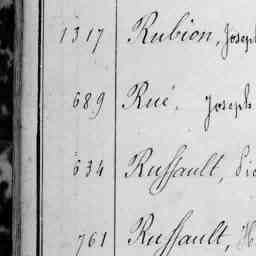 1317 Rubion, Joseph
689 Rué, Joseph
634 Ruffault,
761 Ruffault, H